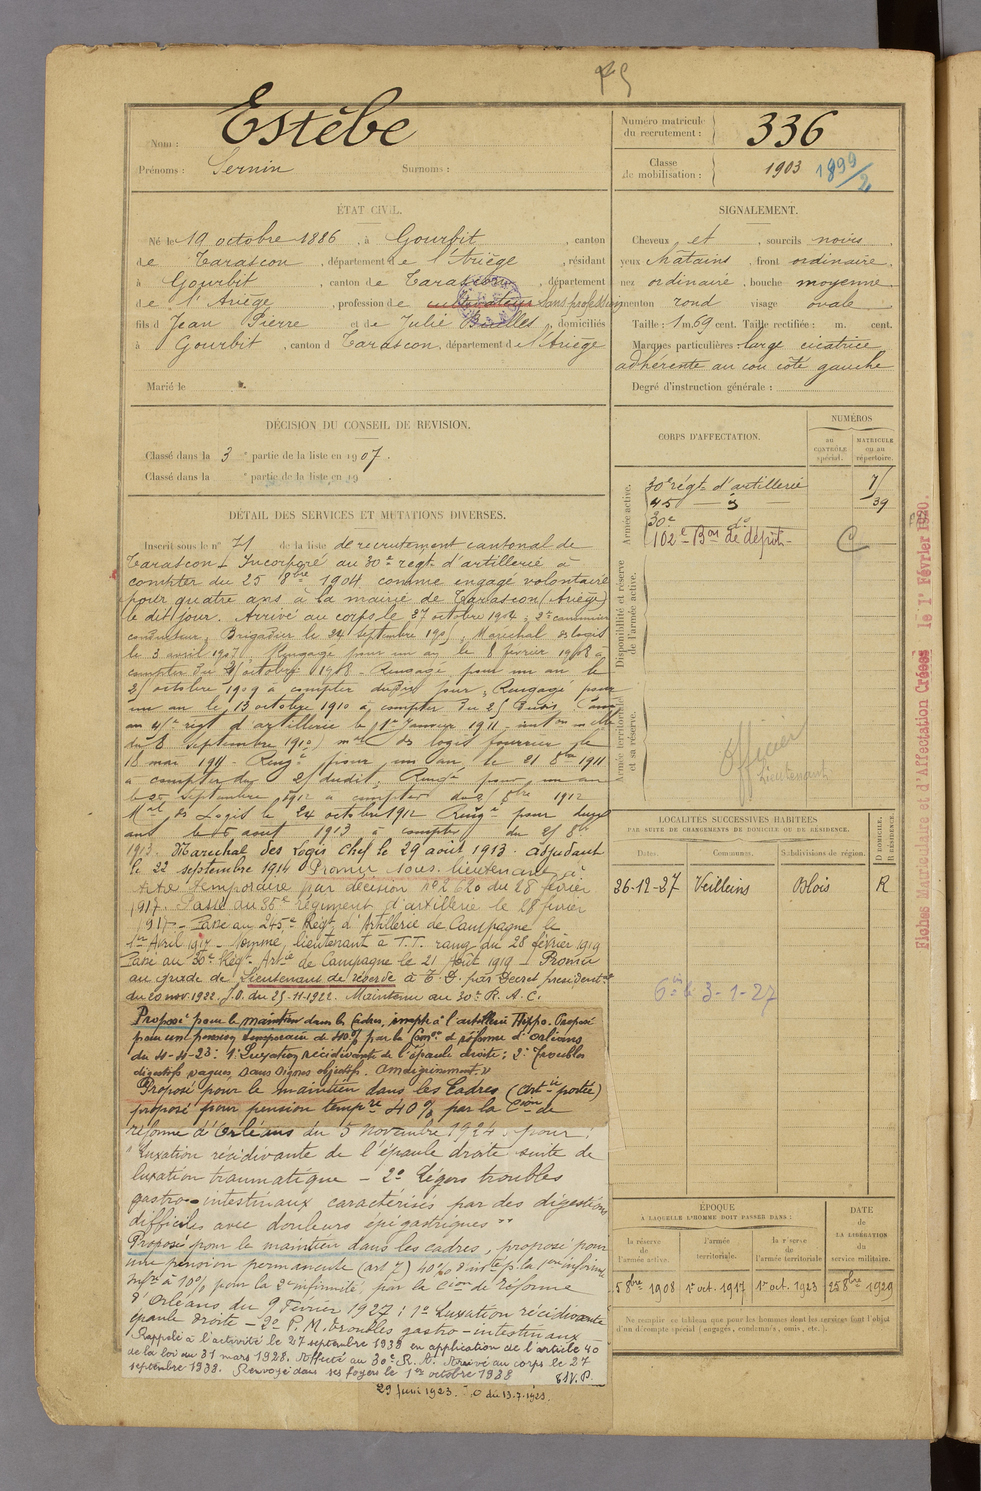 Nom : Estèbe
Prénoms : Sernin Surnoms :
Numéro matricule du recrutement : 336
Classe de mobilisation : 1903 1899/2
ÉTAT CIVIL.
Né le 19 octobre 1886, à Gourbit, canton
de Tarascon, département de l'Ariège, résidant
à Gourbit, canton de Tarascon, département
de l'Ariège, profession de cultivateur Sans profession
fils d Jean Pierre et de Julie Buelles, domiciliés
à Gourbit, canton d Tarascon, département de l'Ariège
Marié le
SIGNALEMENT.
Cheveux et, sourcils noirs,
yeux chatains, front ordinaire,
nez ordinaire, bouche moyenne
menton rond visage ovale
Taille : 1 m. 69 cent. Taille rectifiée : m. cent.
Marques particulières : large cicatrice
adhérente au cou côté gauche
Degré d'instruction générale :
DÉCISION DU CONSEIL DE REVISION.
Classé dans la 3e partie de la liste en 1907.
Classé dans la e partie de la liste en 19
DÉTAIL DES SERVICES ET MUTATIONS DIVERSES.
Inscrit sous le n° 71 de la liste de recrutement cantonal de
Tarascon. Incorporé au 30e régt d'artillerie à
compter du 25 8bre 1904 comme engagé volontaire
pour quatre ans à la mairie de Tarascon (Ariège)
le dit jour. Arrivé au corps le 27 octobre 1904, 2e canonnier
conducteur, Brigadier le 24 septembre 1905, Maréchal des logis
le 3 avril 1907. Rengagé pour un an le 8 février 1908 à
compter du 25 octobre 1908. Rengagé pour un an le
25 octobre 1909 à compter du dit jour, Rengagé pour
un an le 13 octobre 1910 à compter du 25 dudit, Passé
au 45e régt d'artillerie le 1er Janvier 1911
du 8 septembre 1910) mal des logis fourrier le
18 mai 1911 - Rengé pour un an le 21 8bre 1911
à compter du 25 dudit, Rengé pour un an
le septembre 1912 à compter du 25 8bre 1912
Mal des Logis le 24 octobre 1912 Rengé pour deux
ans le août 1913 à compter du 25 8bre
1913. Maréchal des Logis Chef le 29 août 1913. adjudant
le 22 septembre 1914 Promu sous-lieutenant à
titre temporaire par décision N° 2620 du 28 février
1917. Passé au 35e régiment d'artillerie le 28 février
1917 - Passé au 245e Régt d'Artillerie de Campagne le
1er Avril 1917 - Nommé lieutenant à T.T. rang du 28 février 1919
Passé au 30e Régt Artie de Campagne le 21 Août 1919 - Promu
au grade de Lieutenant de réserve à T.D. par Decret president
du 20 nov. 1922. J.O. du 25-11-1922. Maintenu au 30e R.A.C.
Proposé pour le maintien dans les Cadres, inapte à l'artillerie Hippo. Proposé
pour une pension temporaire de 40% par la Comon de réforme d'Orléans
du 4-4-23 : 1° Luxation récidivante de l'épaule droite ; 2° Troubles
digestifs vagues, sans signes objectifs. Amaigrissement.
Proposé pour le maintien dans les Cadres (Artie portée)
proposé pour pension tempre 40% par la Cion de
réforme d'Orléans du 5 Novembre 1924 pour :
"Luxation récidivante de l'épaule droite suite de
luxation traumatique - 2° Légers troubles
gastro-intestinaux caractérisés par des digestions
difficiles avec douleurs épigastriques"
Proposé pour le maintien dans les cadres, proposé pour
une pension permanente (art 7) 40% p. la 1ère infirmité
infre à 10% pour la 2e infirmité par la Cion de réforme
d'Orléans du 9 Février 1927 : 1° Luxation récidivante
épaule droite - 2° P.M. troubles gastro-intestinaux
Rappelé à l'activité le 27 septembre 1938 en application de l'article 40
de la loi du 31 mars 1928. Affecté au 30e R.A. Arrivé au corps le 27
septembre 1938. Renvoyé dans ses foyers le 1er octobre 1938
T.S.V.P.
29 Juin 1923. O du 13.7.1923.
CORPS D'AFFECTATION.
NUMÉROS
AU CONTRÔLE spécial.
MATRICULE ou au répertoire.
Armée active.
30e régt d'artillerie 7
45 39
30e do
102e Bon de dépôt
Disponibilité et réserve de l'armée active.
Armée territoriale et sa réserve.
Officier
Lieutenant
LOCALITÉS SUCCESSIVES HABITÉES
PAR SUITE DE CHANGEMENTS DE DOMICILE OU DE RÉSIDENCE.
Dates. Communes. Subdivisions de région. D DOMICILE. R RÉSIDENCE.
26-12-27 Veilleins Blois R
3-1-27
ÉPOQUE
À LAQUELLE L'HOMME DOIT PASSER DANS :
la réserve de l'armée active.
l'armée territoriale.
la réserve de l'armée territoriale
DATE de LA LIBÉRATION du service militaire.
25 8bre 1908 1er oct. 1917 1er oct. 1923 25 8bre 1929
Ne remplir ce tableau que pour les hommes dont les services font l'objet
d'un décompte spécial (engagés, condamnés, omis, etc.).
Fiches Matriculaire et d'Affectation Créées le 1er Février 1920.